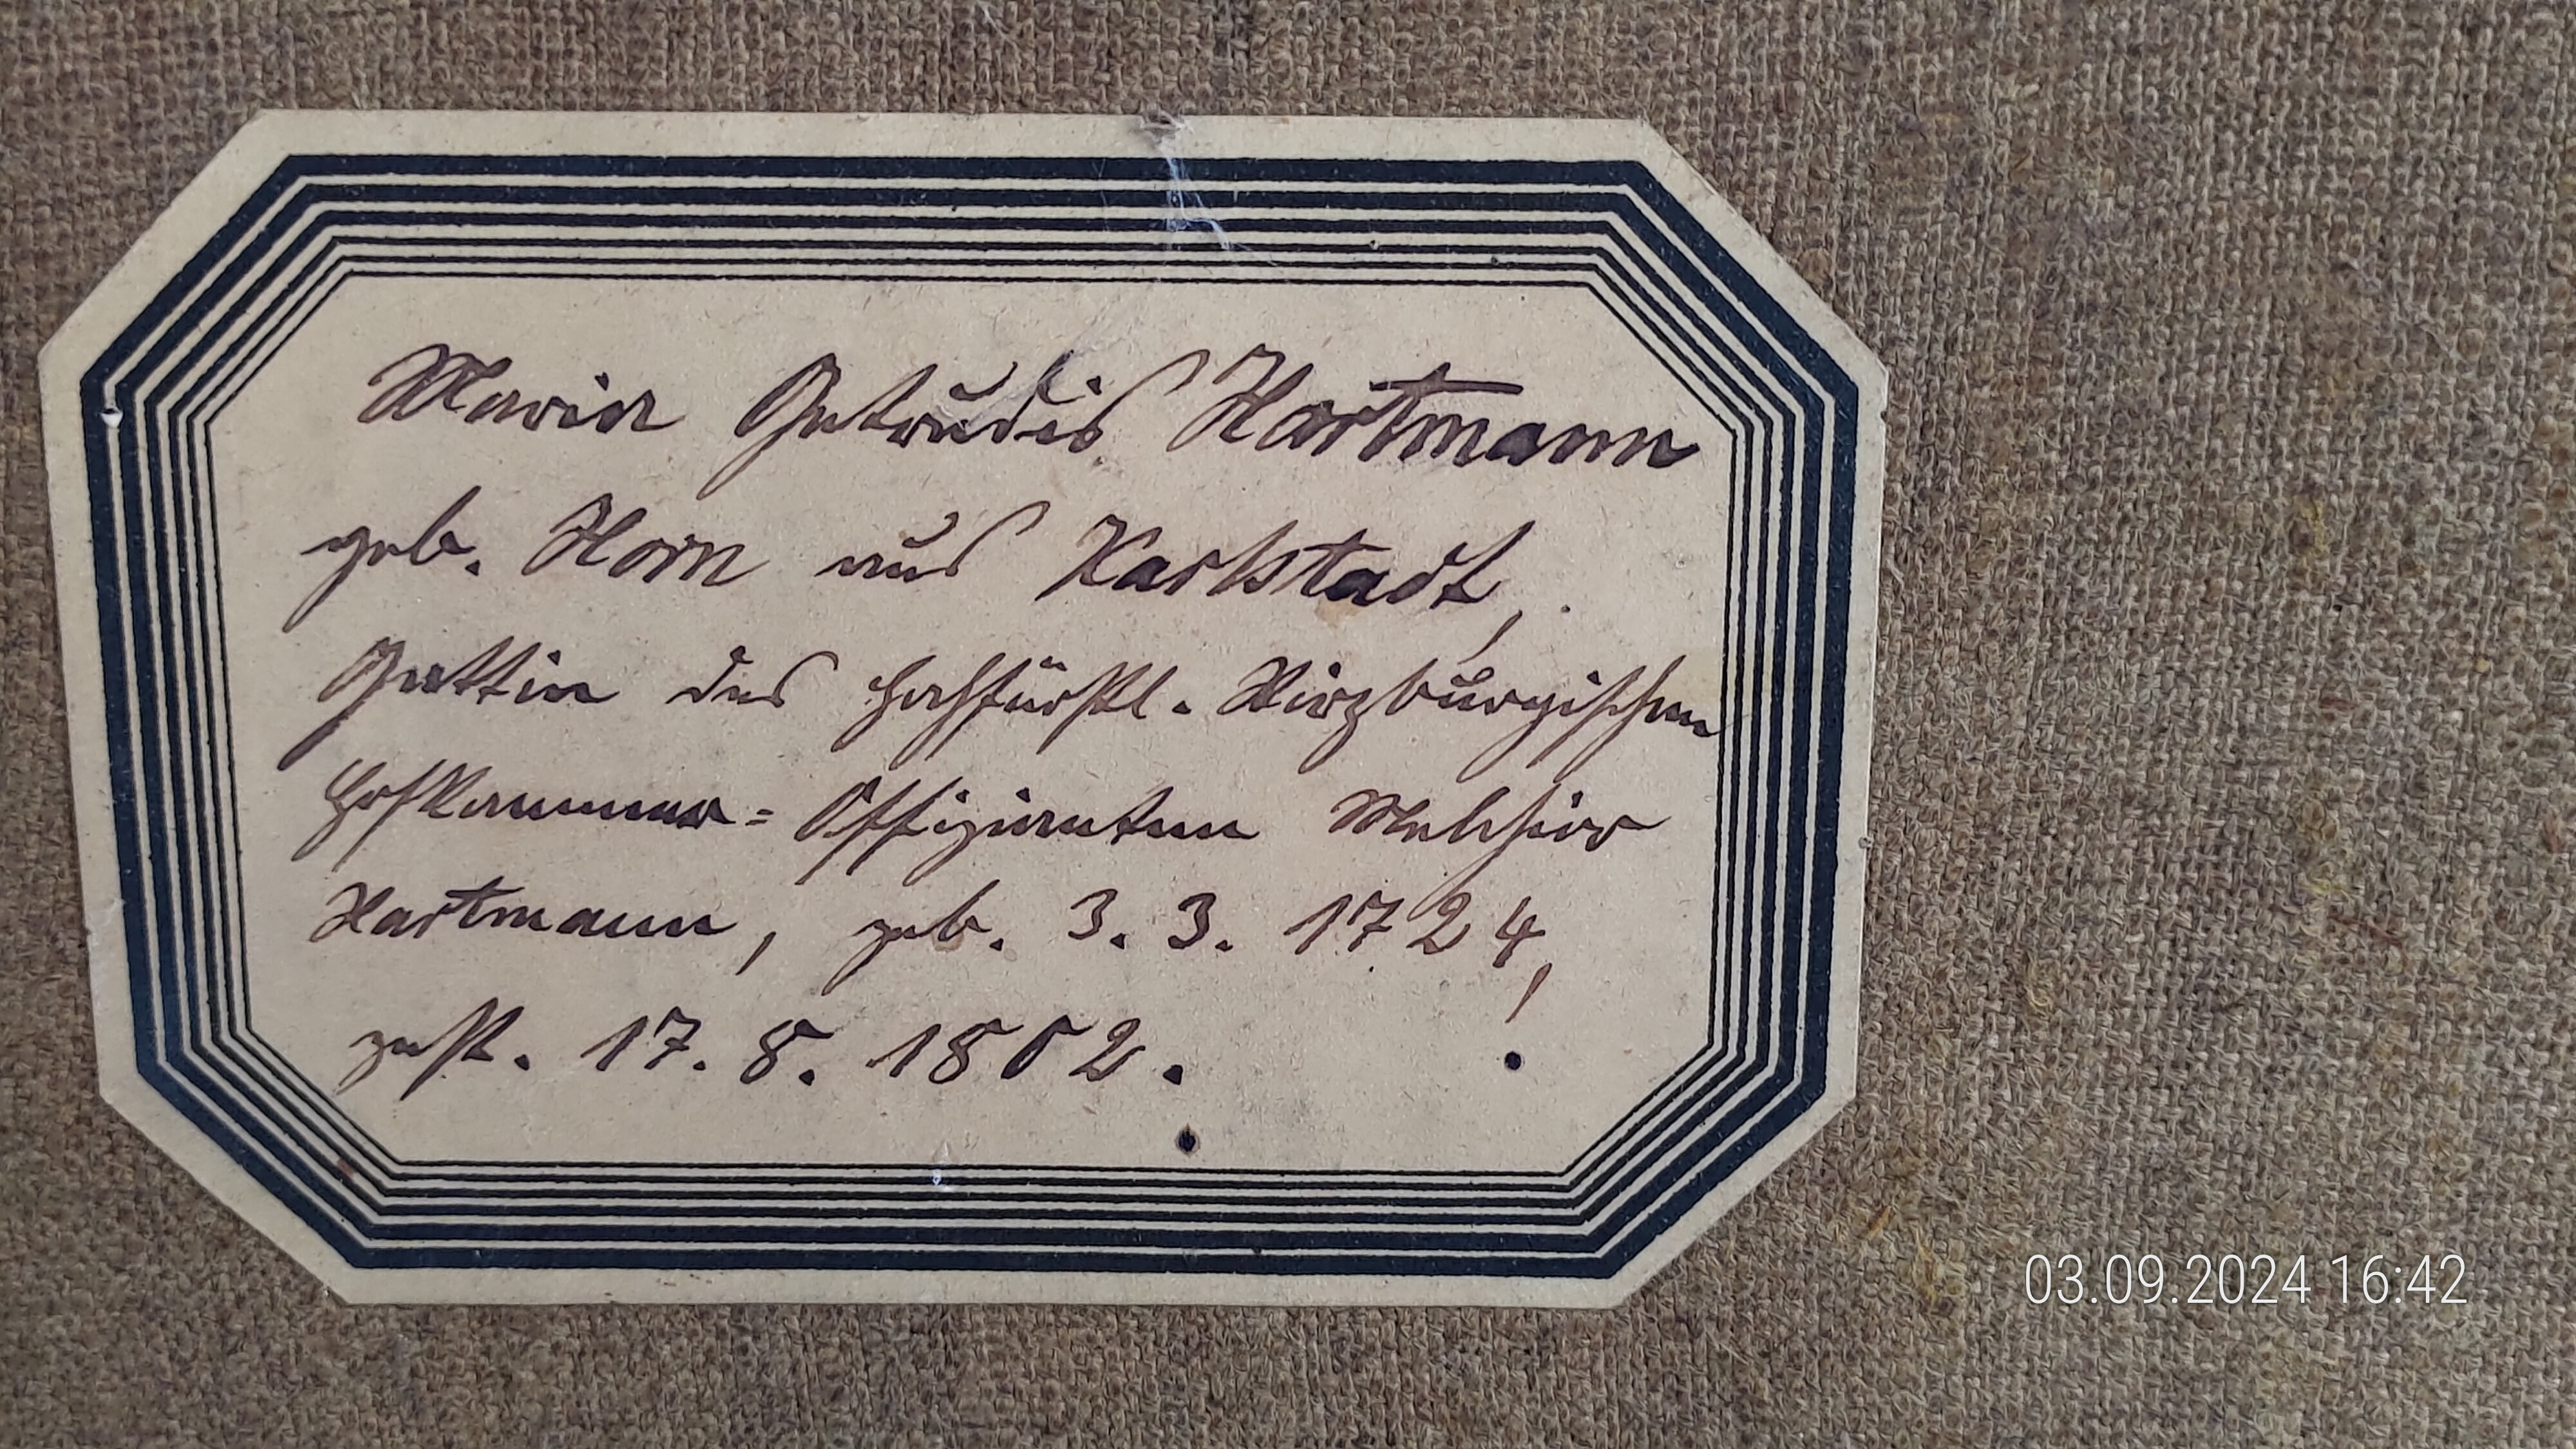 Maria Getrudis Hartmann
geb. Horn aus Karlstadt,
Gattin des hochfürstl. Wirzburgischen
Hofkammer= Offizianten Melchior
Hartmann, geb. 3. 3. 1724,
gest. 17. 8. 1802.
03.09.2024 16:42